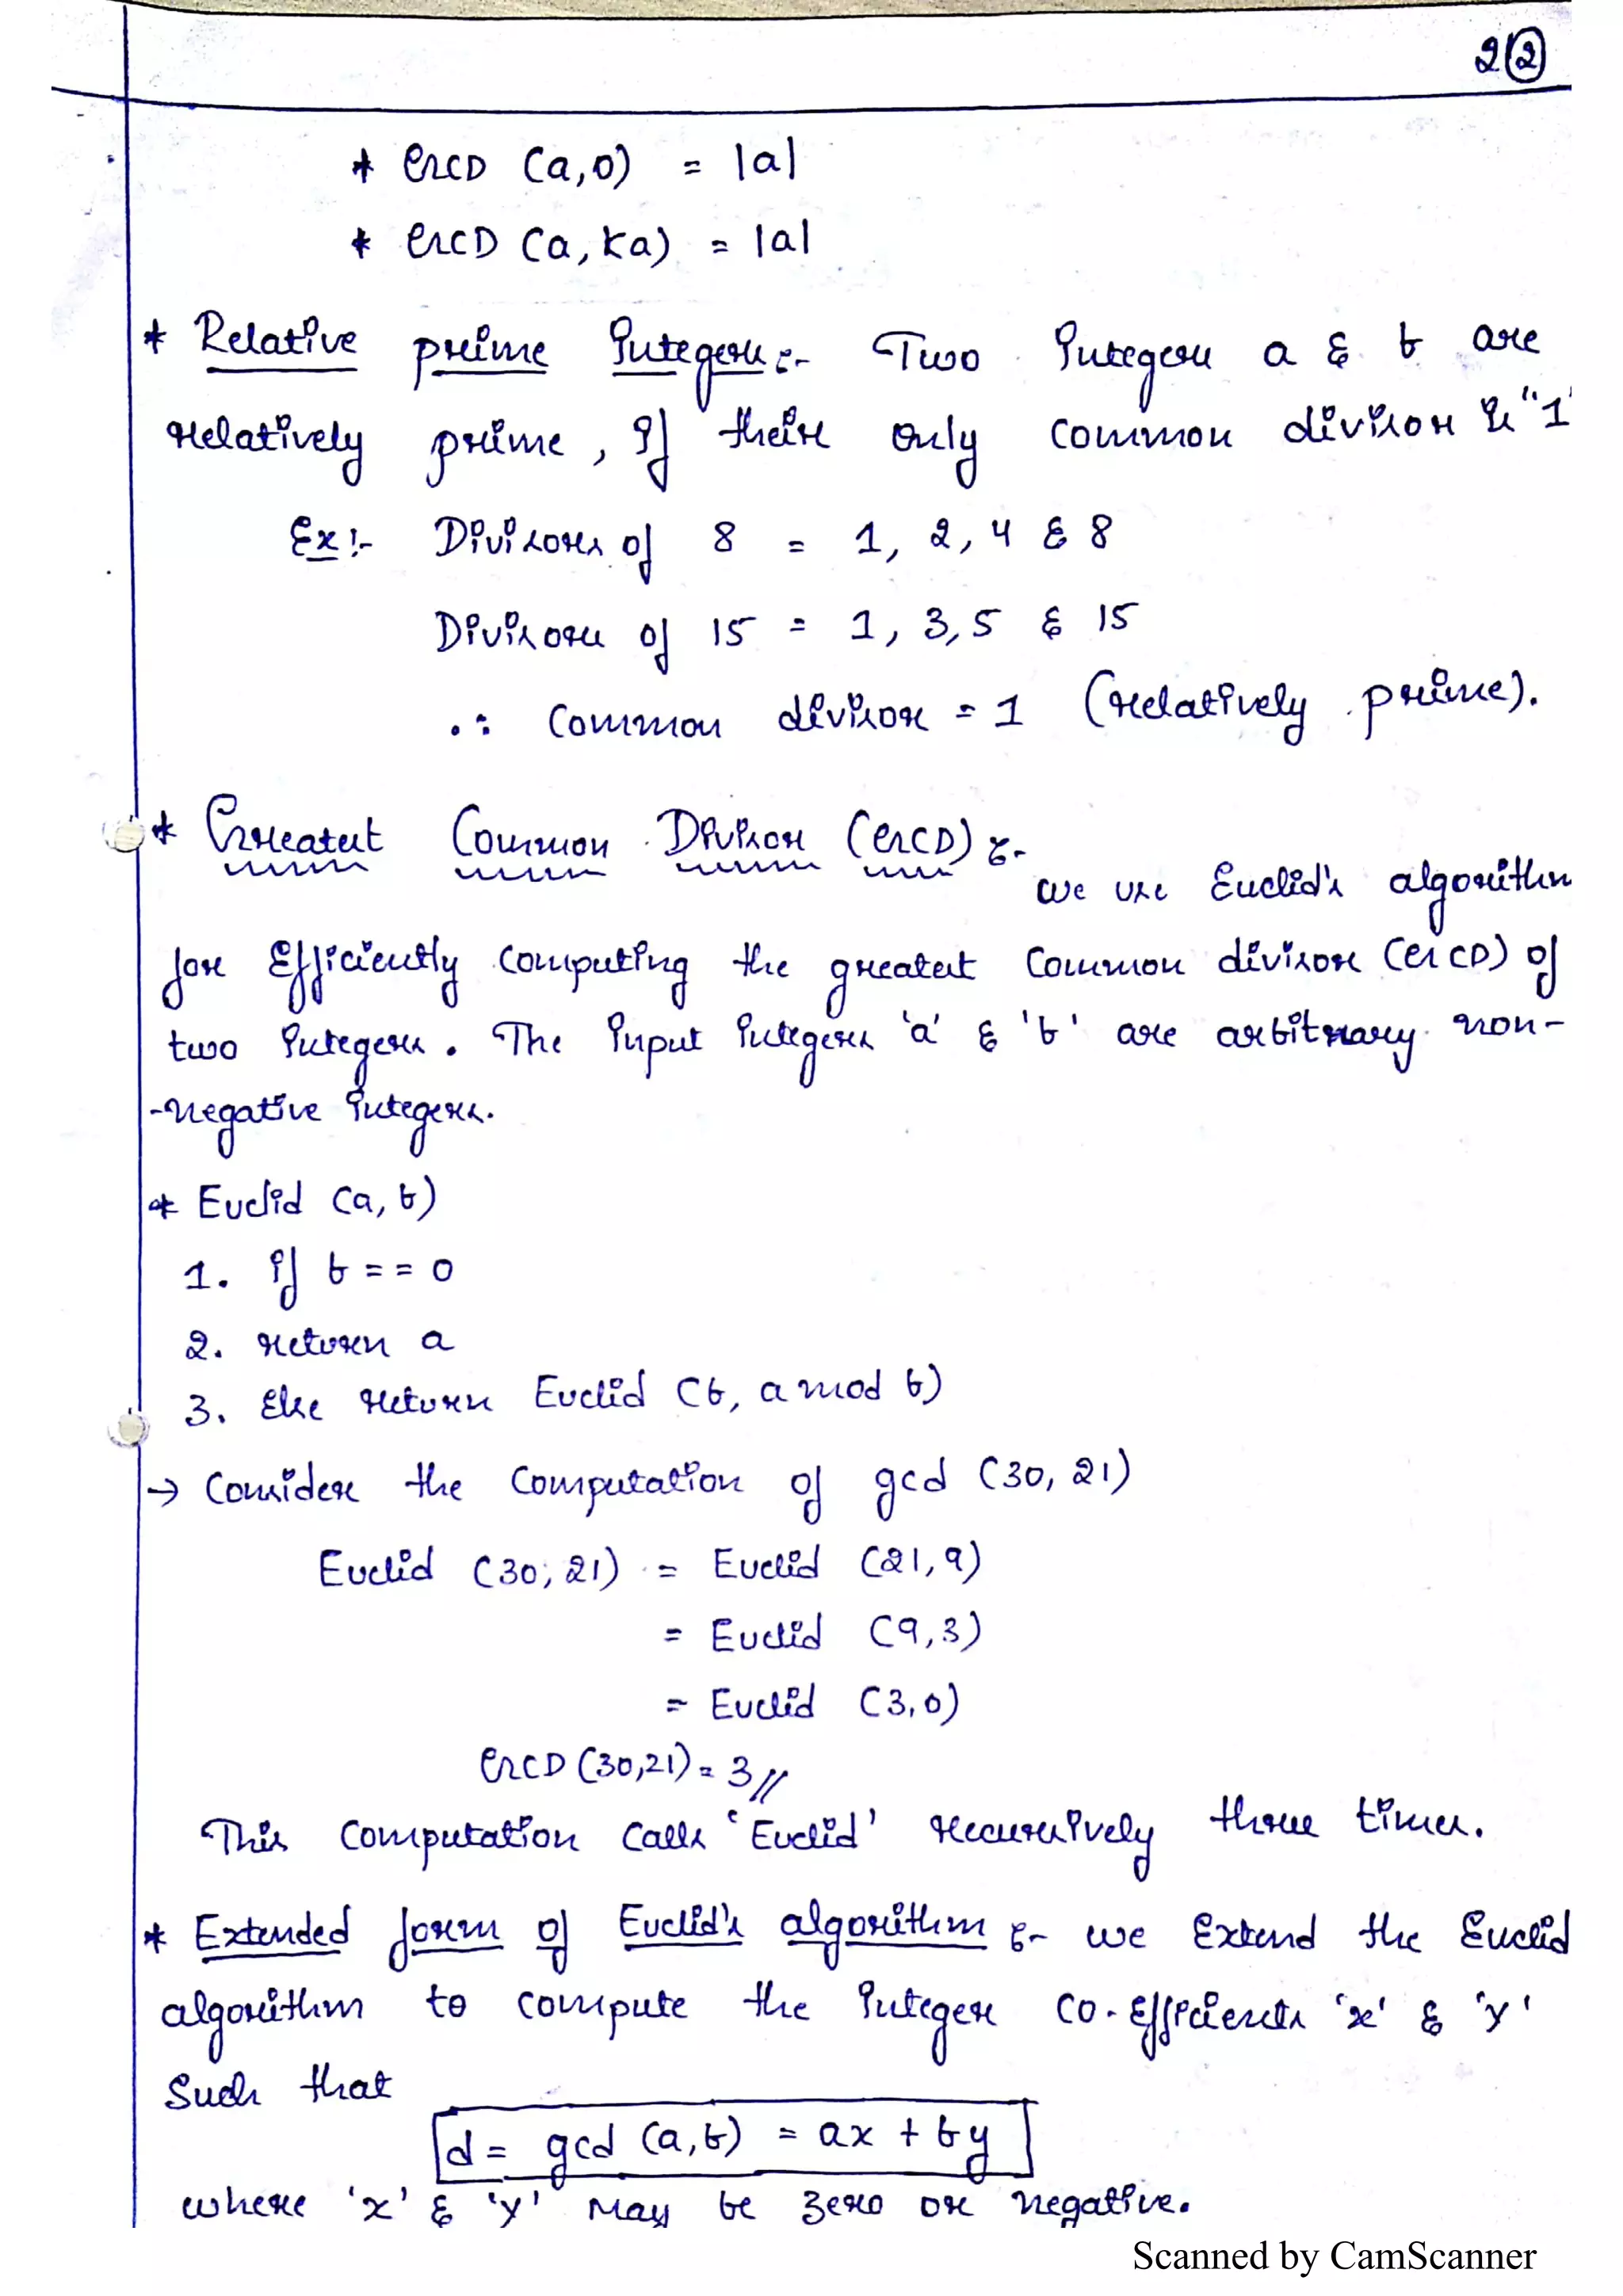 2②
* GCD (a,0) = |a|
* GCD (a,Ka) = |a|
* Relative prime Integers :- Two Integers a & b are
relatively prime, If their only common divisor is "1"
Ex :- Divisors of 8 = 1, 2, 4 & 8
Divisors of 15 = 1, 3, 5 & 15
∴ Common divisor = 1 (relatively prime).
* Greatest Common Divisor (GCD) :- we use Euclid's algorithm
for Efficiently computing the greatest common divisor (GCD) of
two Integers. The Input Integers 'a' & 'b' are arbitrary non-
-negative Integers.
* Euclid (a, b)
1. If b == 0
2. return a
3. Else return Euclid (b, a mod b)
→ Consider the computation of gcd (30, 21)
Euclid (30, 21) = Euclid (21, 9)
= Euclid (9,3)
= Euclid (3,0)
GCD (30,21) = 3//
This computation calls 'Euclid' recursively three times.
* Extended form of Euclid's algorithm :- we Extend the Euclid
algorithm to compute the Integer co-Efficients 'x' & 'y'
Such that
d = gcd (a,b) = ax + by
where 'x' & 'y' may be zero or negative.
Scanned by CamScanner